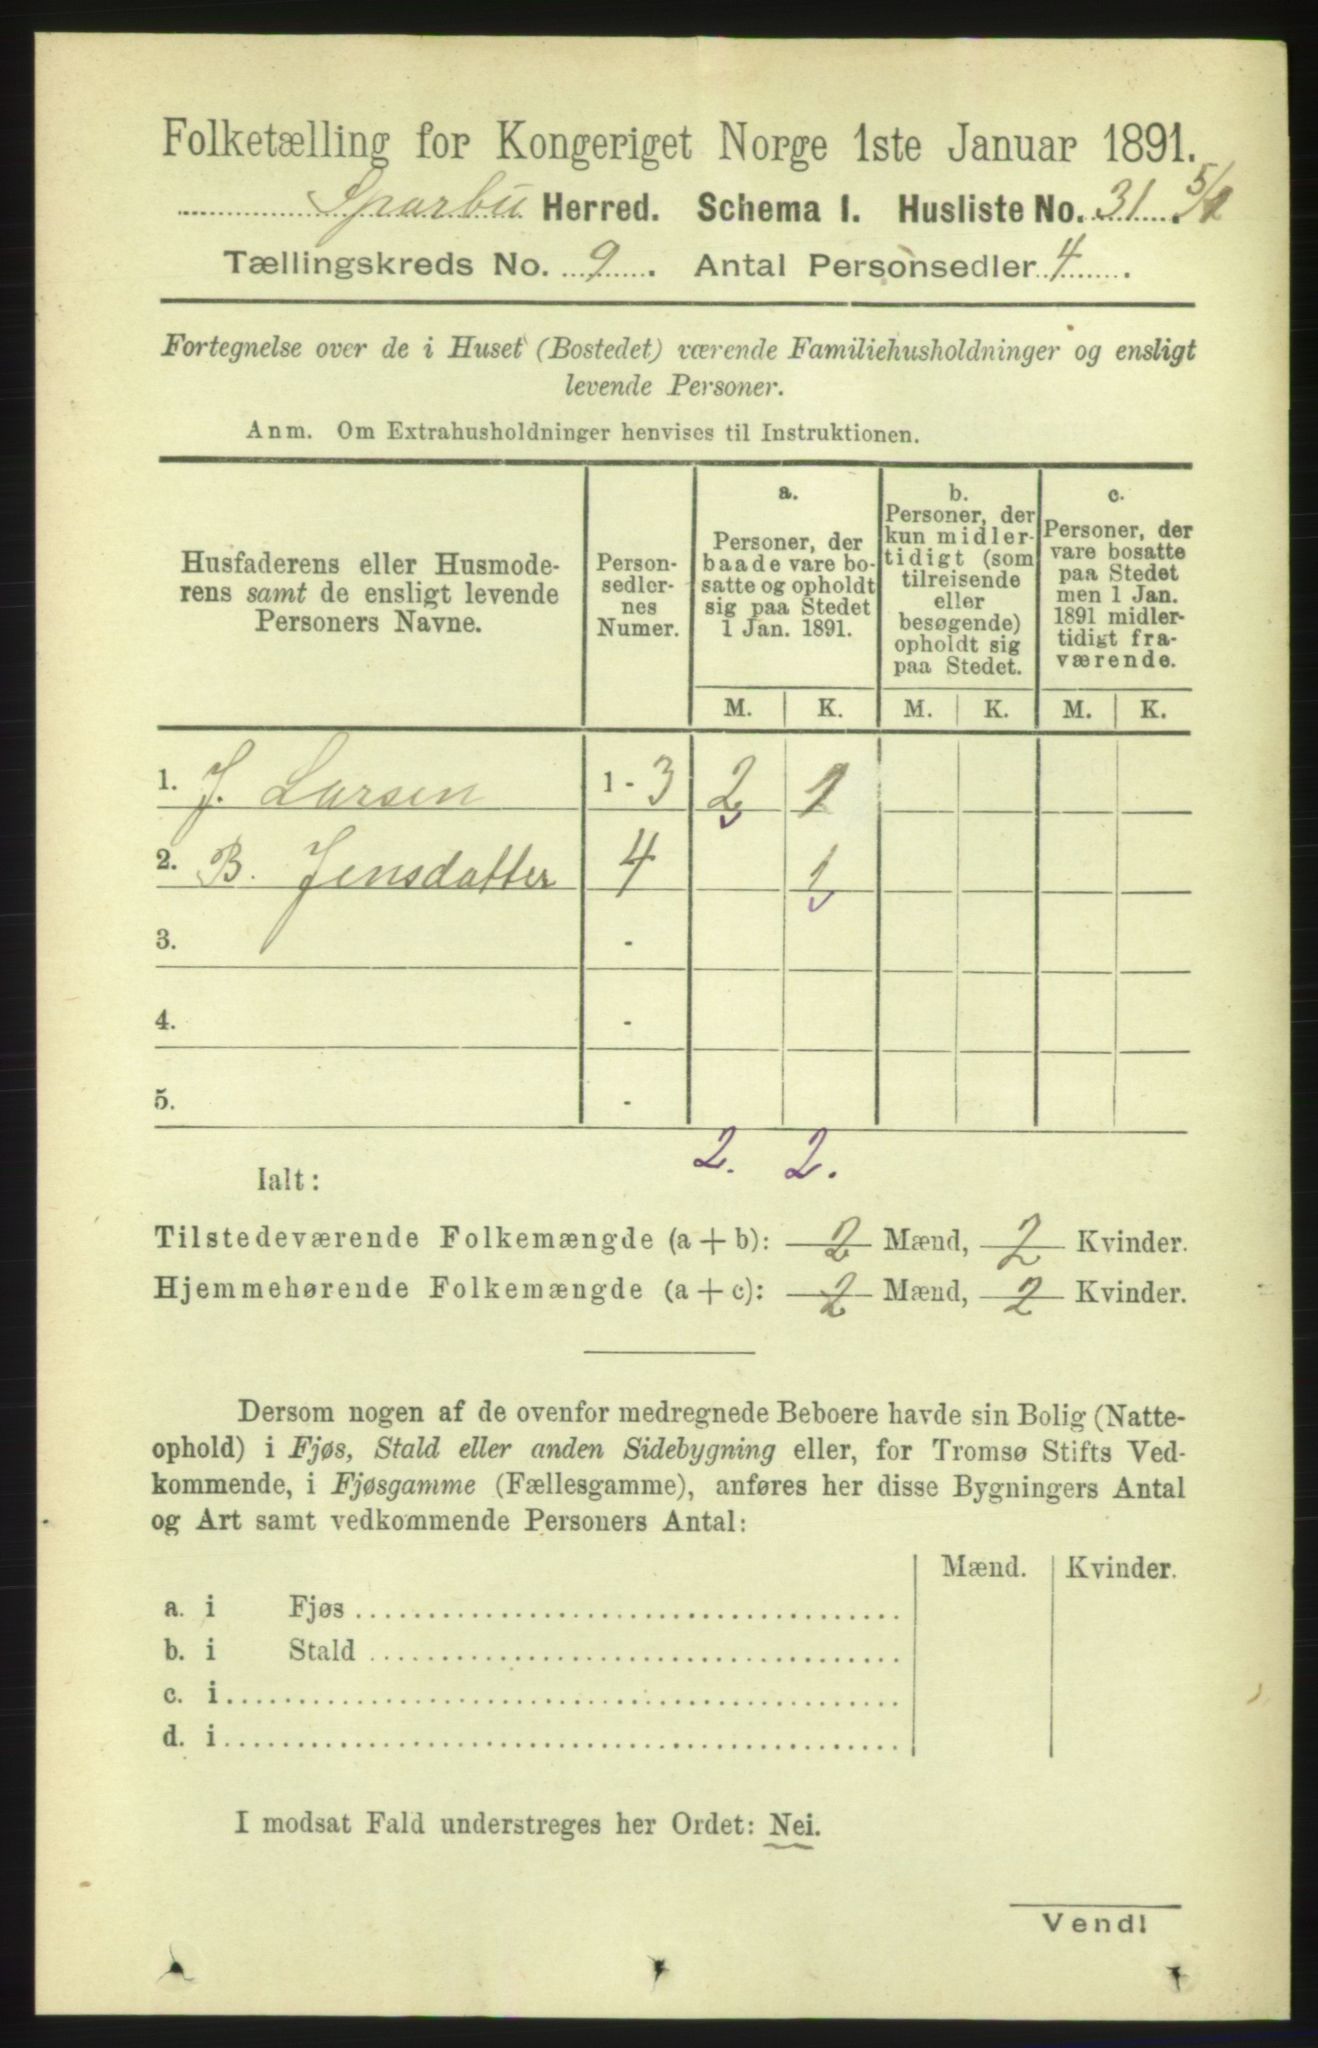 Folketælling for Kongeriget Norge 1ste Januar 1891.
Sparbu Herred. Schema I. Husliste No. 31. 5/1
Tællingskreds No. 9. Antal Personsedler 4.
Fortegnelse over de i Huset (Bostedet) værende Familiehusholdninger og ensligt
levende Personer.
Anm. Om Extrahusholdninger henvises til Instruktionen.
Husfaderens eller Husmode-
rens samt de ensligt levende
Personers Navne.
Person-
sedler-
nes
Numer.
a.
Personer, der
baade vare bo-
satte og opholdt
sig paa Stedet
1 Jan. 1891.
b.
Personer, der
kun midler-
tidigt (som
tilreisende
eller
besøgende)
opholdt sig
paa Stedet.
c.
Personer, der
vare bosatte
paa Stedet
men 1 Jan.
1891 midler-
tidigt fra-
værende.
M. K. M. K. M. K.
1. J. Larsen 1 - 3 2 1
2. B. Jensdatter 4 1
3. -
4. -
5. -
2. 2.
Ialt:
Tilstedeværende Folkemængde (a + b): 2 Mænd, 2 Kvinder.
Hjemmehørende Folkemængde (a + c): 2 Mænd, 2 Kvinder.
Dersom nogen af de ovenfor medregnede Beboere havde sin Bolig (Natte-
ophold) i Fjøs, Stald eller anden Sidebygning eller, for Tromsø Stifts Ved-
kommende, i Fjøsgamme (Fællesgamme), anføres her disse Bygningers Antal
og Art samt vedkommende Personers Antal:
Mænd. Kvinder.
a. i Fjøs
b. i Stald
c. i
d. i
I modsat Fald understreges her Ordet: Nei.
Vend!